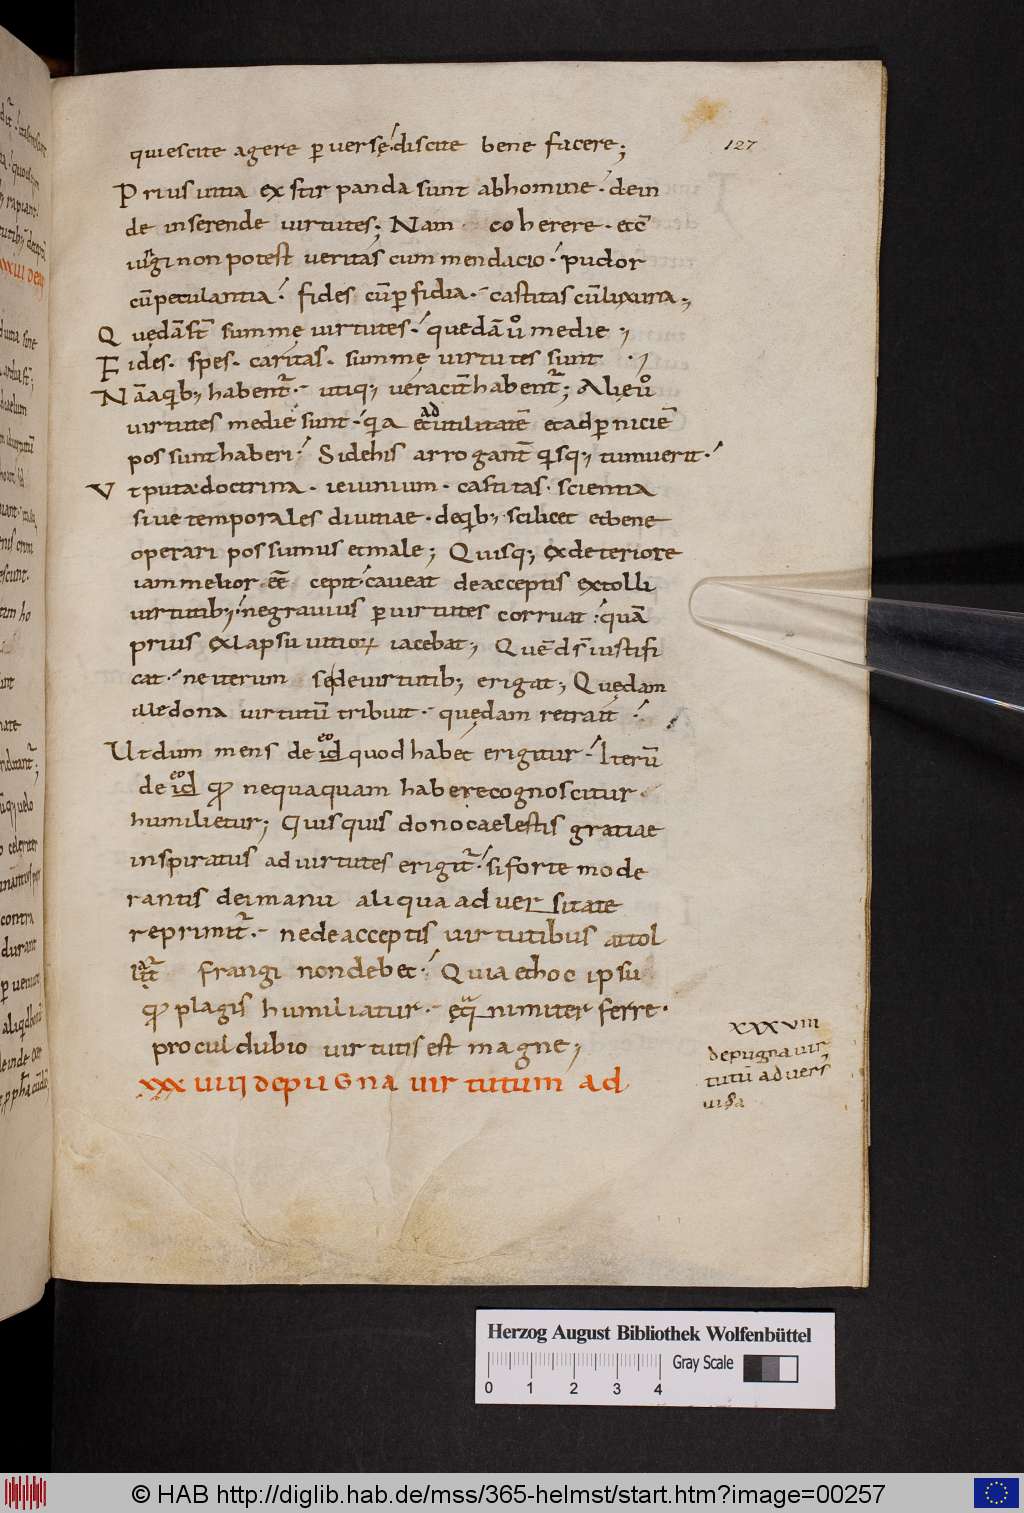 quiescite agere p̱ verse discite bene facere;
127
Prius uitia exstirpanda sunt abhomine. dein
de inserende uirtutes; Nam coherere. etc̄
iurgi non potest ueritas cum mendacio. pudor
cū petulantia. fides cū p̱fidia. castitas cū luxuria;
Quędā st̄ summę uirtutes. quedā ů medie;
Fides. spes. caritas. summę uirtutes sunt.;
Nā aqib; habent̃. utiq; ueracit̄ habent̃; Alie ů
uirtutes medie sunt. qia et ad utilitatē et ad p̱niciē
possunt haberi. Si de his arrogant̄ qisq; tumuerit.
Ut puta doctrina. ieiunium. castitas. scientia
siue temporales diuitiae. de qib; scilicet et bene
operari possumus et male; Quisq; ex deteriore
iam melior eē cepit. caueat de acceptis extolli
uirtutib;. ne grauius p̱ uirtutes corruat. quā
prius ex lapsu uitioꝝ iacebat; Quē ds̄ iustifi
cat. ne iterum se de uirtutib; erigat; Quędam
ille dona uirtutū tribuit. quędam retrait.
Ut dum mens de eo id quod habet erigitur. Iterū
de eo id qd nequaquam habere cognoscitur
humilietur; Quisquis dono caelestis gratiae
inspiratus ad uirtutes erigit̃. si forte mode
rantis dei manu aliqua aduersitate
reprimit̃. ne de acceptis uirtutibus attol
lat̃ frangi non debet. Quia et hoc ipsu
qd plagis humiliatur. eqanimiter ferre.
procul dubio uirtutis est magne;
XXXVIII de pugna uirtutum ad
XXXVIII
de pugna uir
tutū aduers
uitia
Herzog August Bibliothek Wolfenbüttel
Gray Scale
0 1 2 3 4
© HAB http://diglib.hab.de/mss/365-helmst/start.htm?image=00257